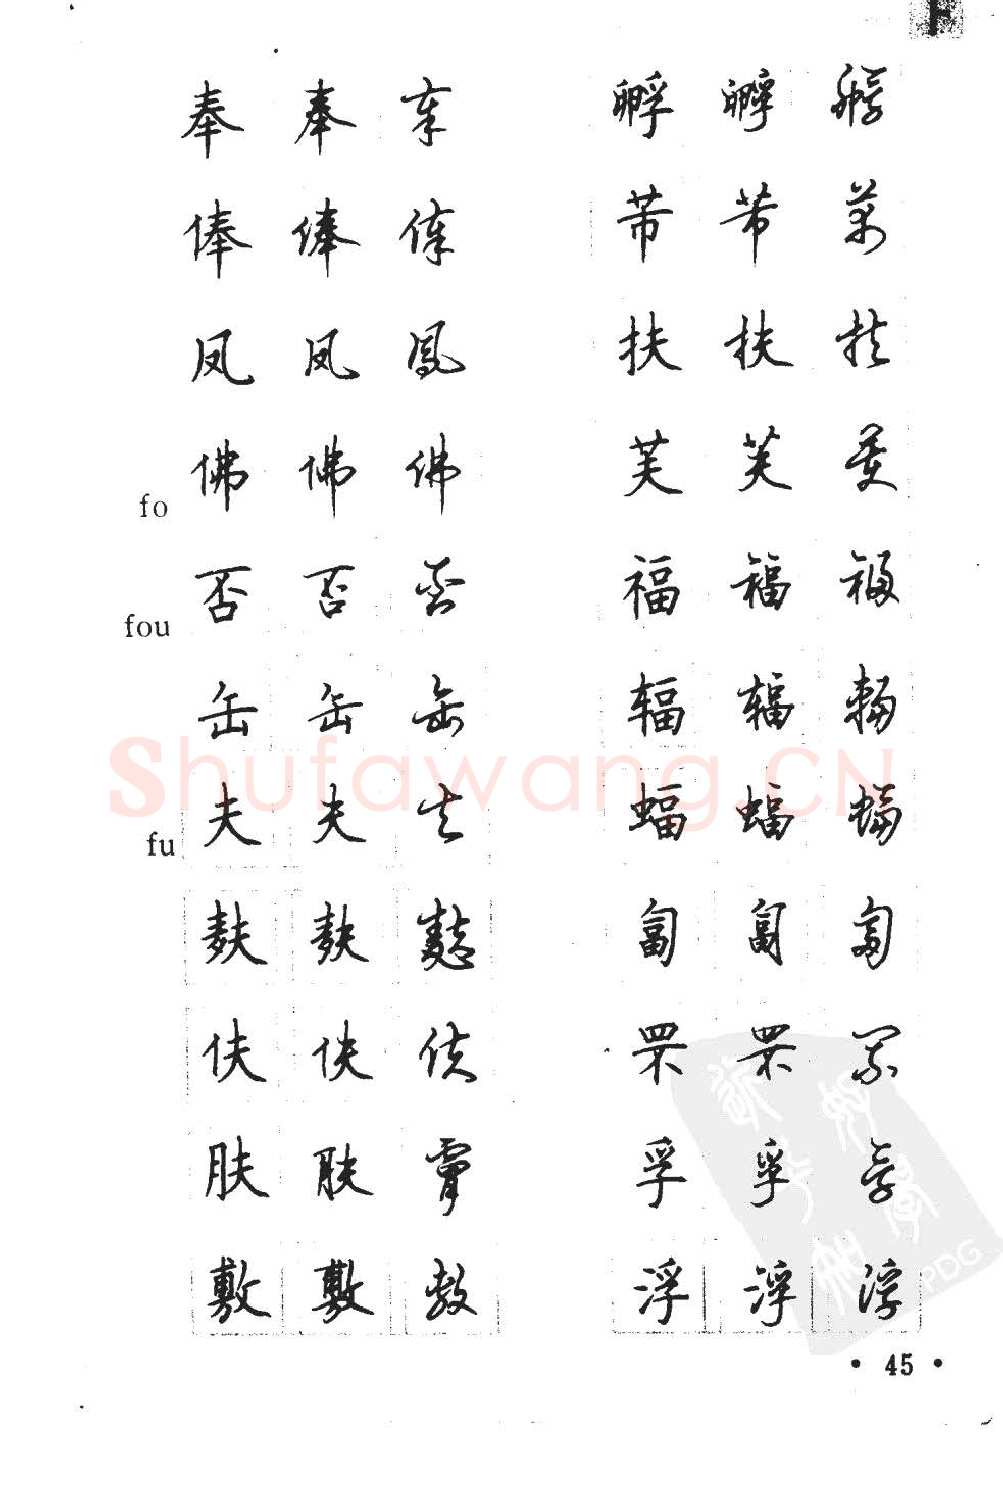 奉 奉 奉
俸 俸 俸
凤 凤 鳳
fo 佛 佛 佛
fou 否 否 否
缶 缶 缶
fu 夫 夫 夫
麸 麸 麩
伕 伕 伕
肤 肤 膚
敷 敷 敷
孵 孵 孵
芾 芾 芾
扶 扶 扶
芙 芙 芙
福 福 福
辐 辐 輻
蝠 蝠 蝠
匐 匐 匐
罘 罘 罘
孚 孚 孚
浮 浮 浮
Shufawang.CN
PDG
• 45 •